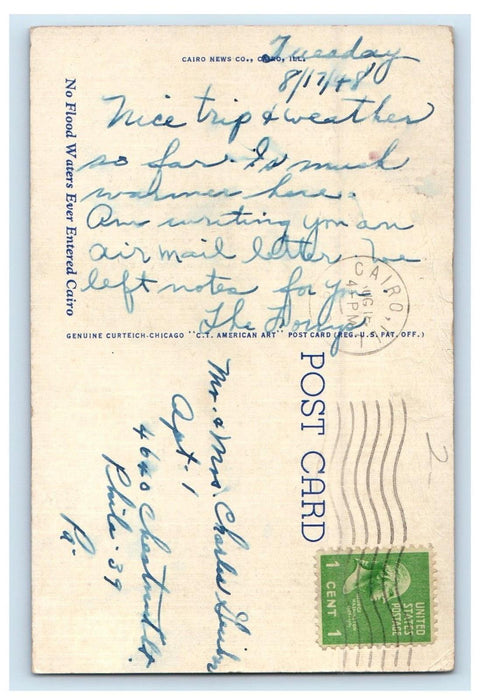 CAIRO NEWS CO., CAIRO, ILL.
Tuesday
8/17/48
Nice trip & weather
so far. Is much
warmer here.
Am writing you an
air mail letter
left notes for you.
The
No Flood Waters Ever Entered Cairo
GENUINE CURTEICH-CHICAGO "C.T. AMERICAN ART" POST CARD (REG. U.S. PAT. OFF.)
POST CARD
CAIRO,
AUG 1
4 PM
Mr. & Mrs. Charles
Apt. 1
4640 Chestnut St.
Phila - 39
Pa.
2
UNITED
STATES
POSTAGE
1 CENT 1